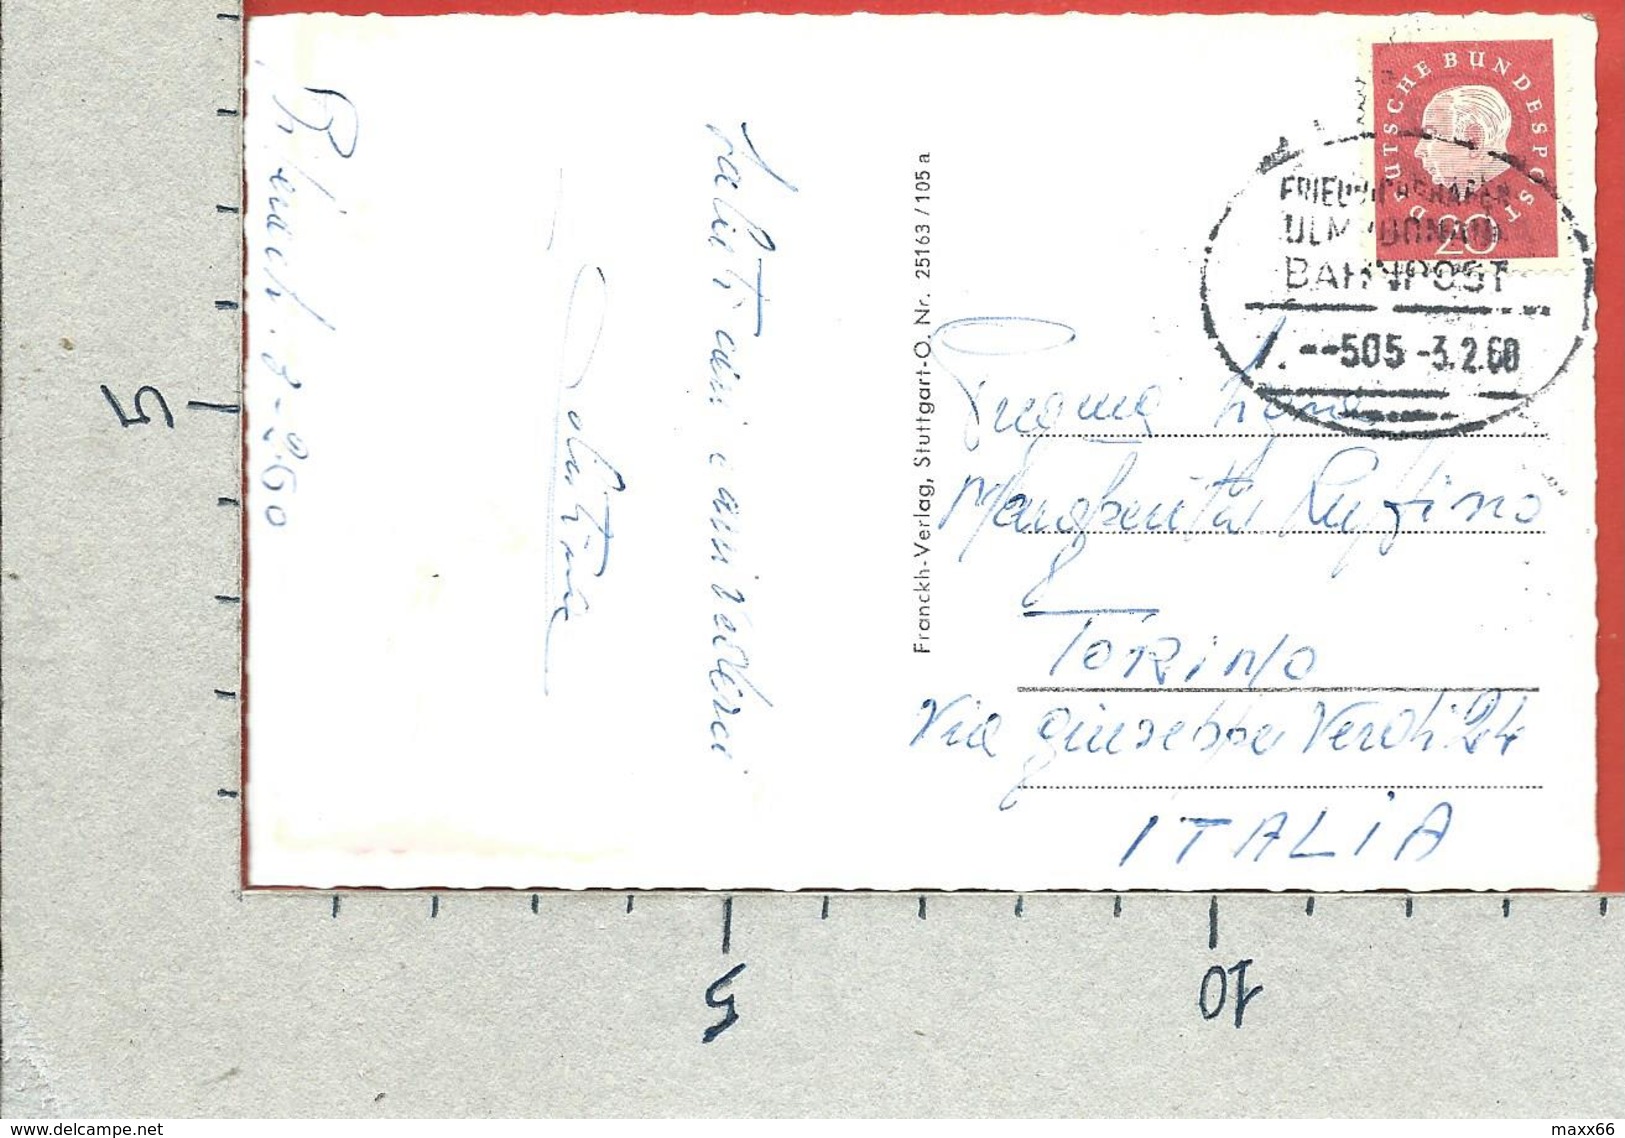 Biberach. 3-2.60
saluti cari e auguri
DEUTSCHE BUNDESPOST
20
FRIEDRICHSHAFEN
ULM (DONAU)
BAHNPOST
Z. --505 -3.2.60
Franckh-Verlag, Stuttgart-O. Nr. 25163/105 a
Margherita Ruffino
TORINO
Via Giuseppe Verdi 24
ITALIA
5
5
10
www.delcampe.net
maxx66